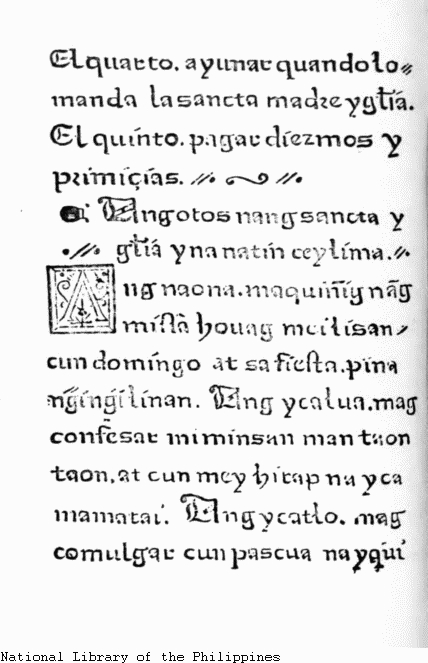 El quarto. ayunar quando lo⸗
manda la sancta madre ygłia.
El quinto. pagar diezmos y
primiçias.
Ang otos nang sancta y
głia yna natin ceylima.
Ang naona. maquinig nãg
missa houag meilisan
cun domingo at sa fiesta. pina
ngingilinan. Ang ycalua. mag
confesar miminsan man taon
taon. at cun mey hirap na yca
mamatai. Ang ycatlo. mag
comulgar cun pascua na yqui
National Library of the Philippines